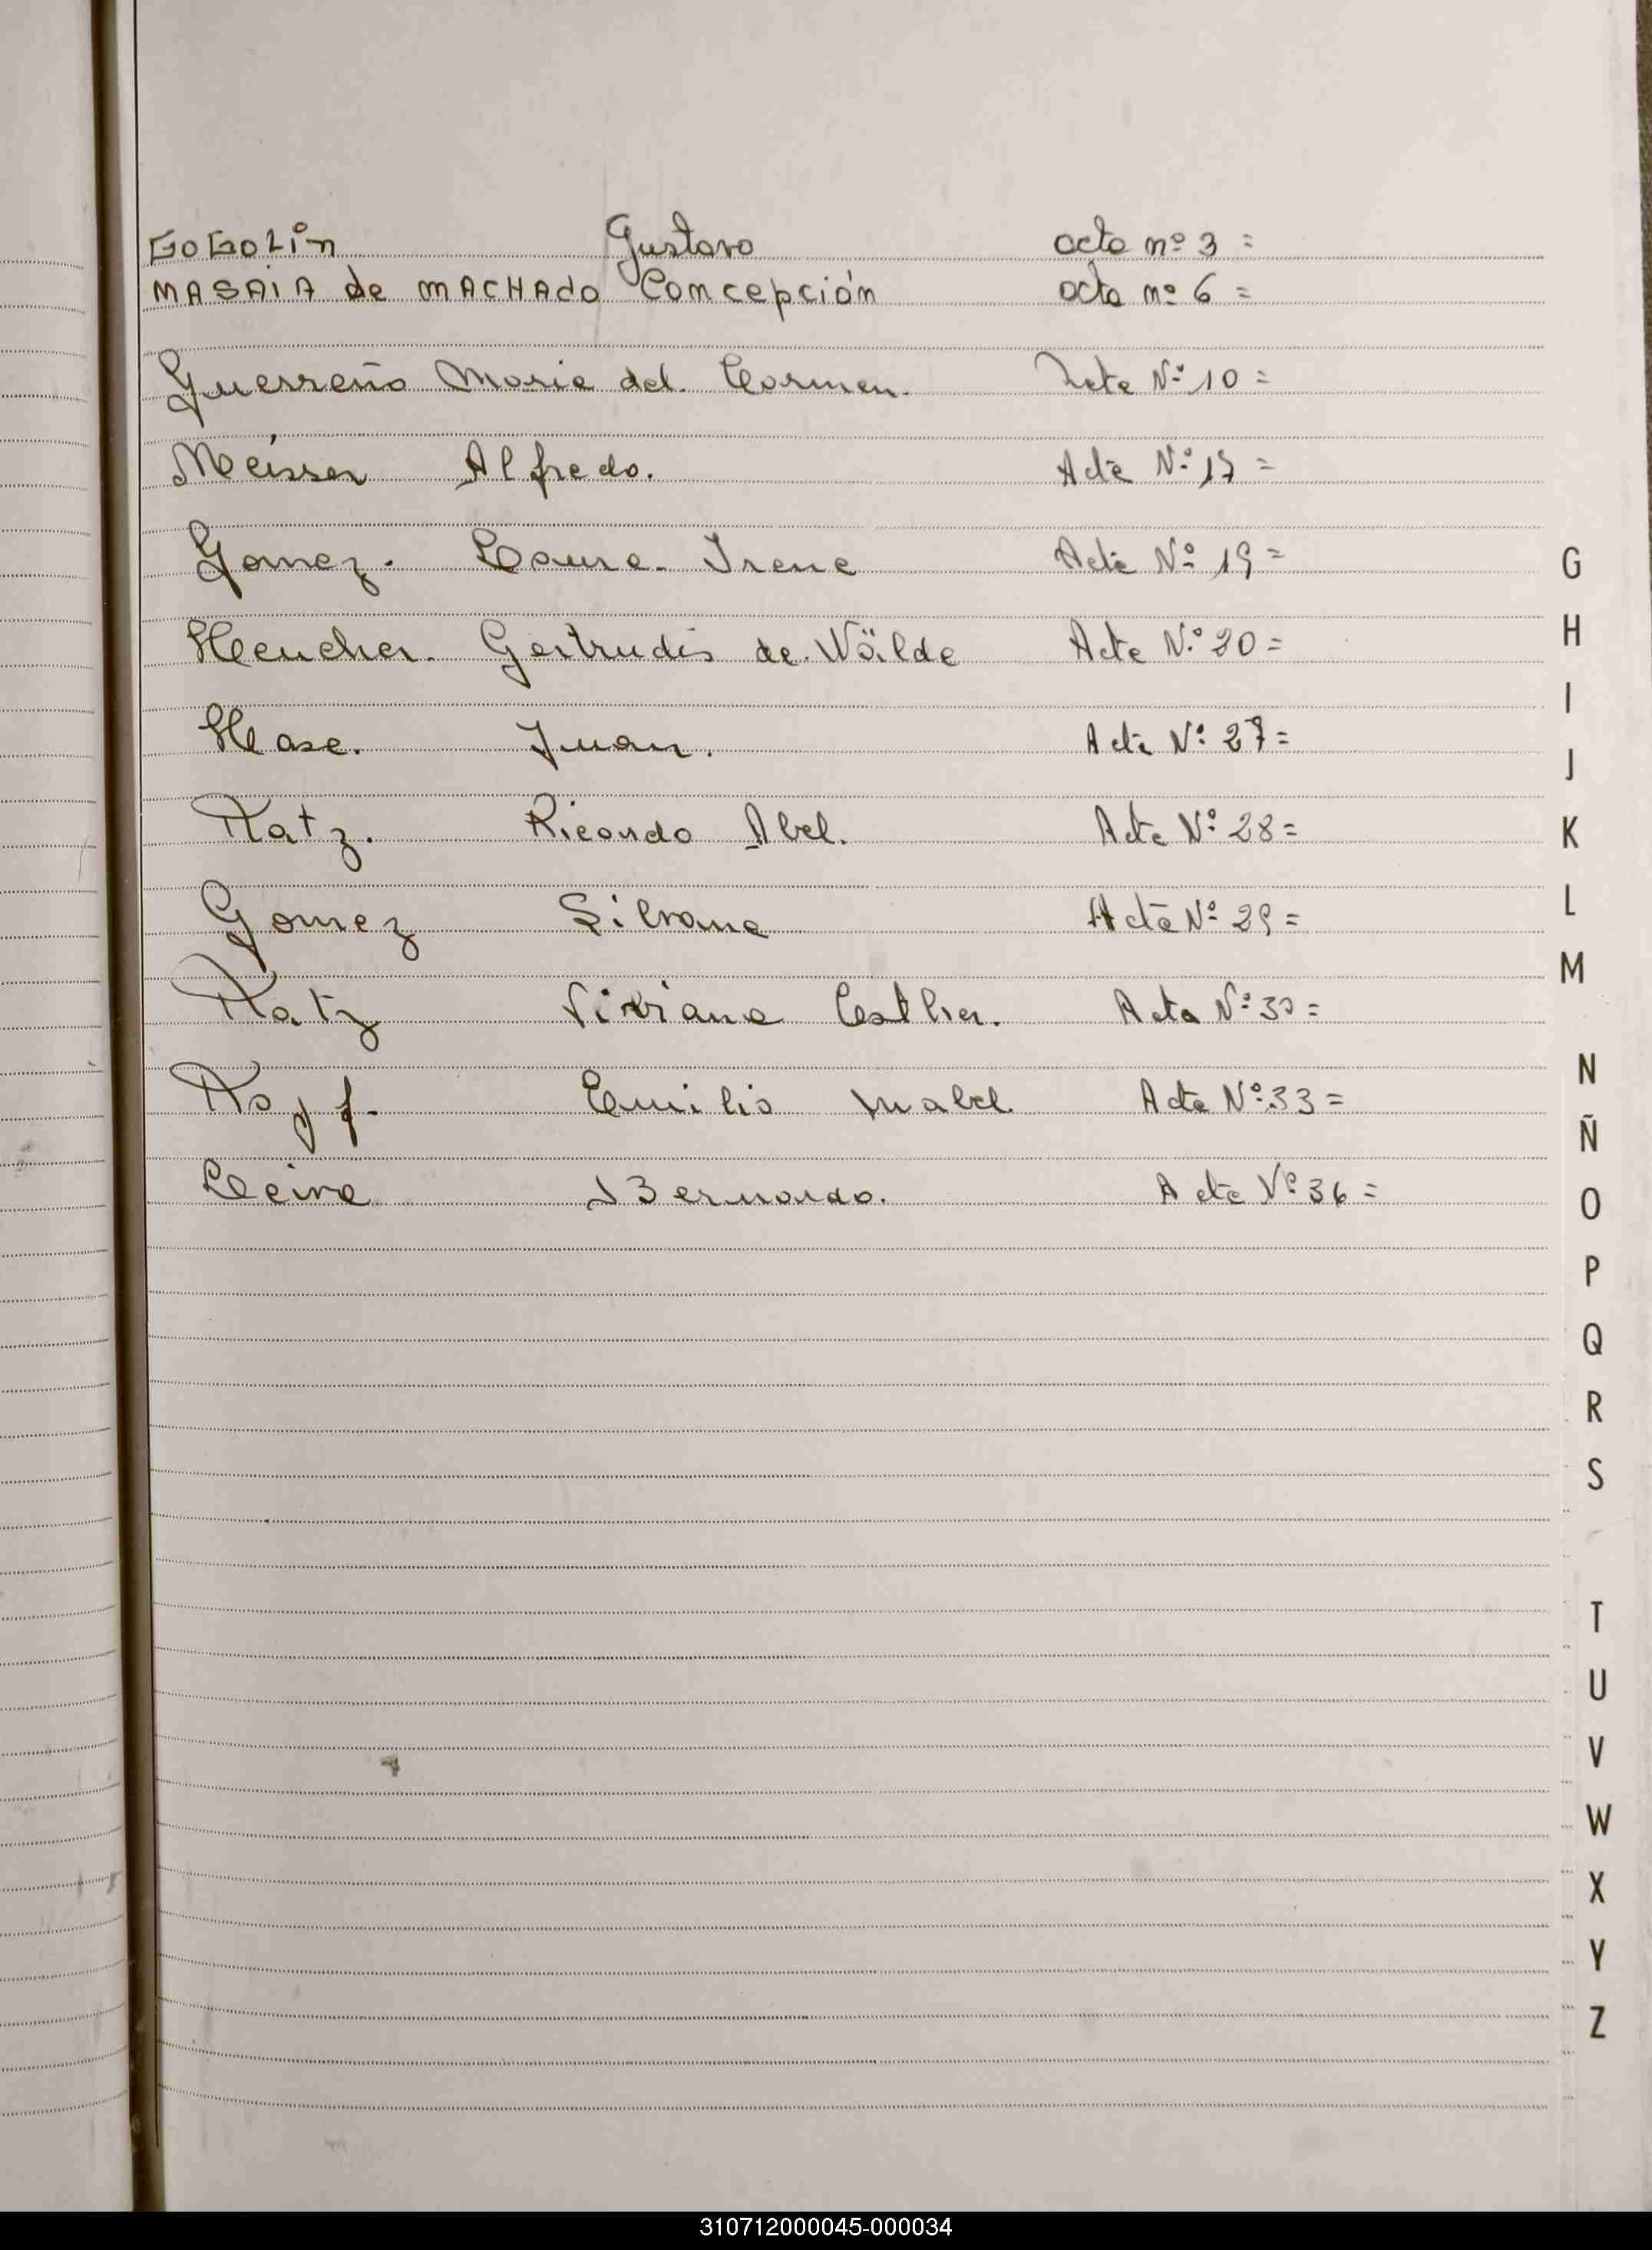 GOGOLin Gustavo acta nº 3 =
MASAiA de mACHAdo Concepción acta nº 6 =
Guerreño Maria del Carmen. Acta Nº 10 =
Meisser Alfredo. Acta Nº 17 =
Gomez. Laura Irene Acta Nº 19 =
Heucher. Gertrudis de Wälde Acta Nº 20 =
Hase. Juan. Acta Nº 27 =
Katz. Ricardo Abel. Acta Nº 28 =
Gomez Silvana Acta Nº 29 =
Katz Viviana Esther. Acta Nº 30 =
Emilio Mabel Acta Nº 33 =
Leiva Bernardo. Acta Nº 36 =
G
H
I
J
K
L
M
N
Ñ
O
P
Q
R
S
T
U
V
W
X
Y
Z
310712000045-000034